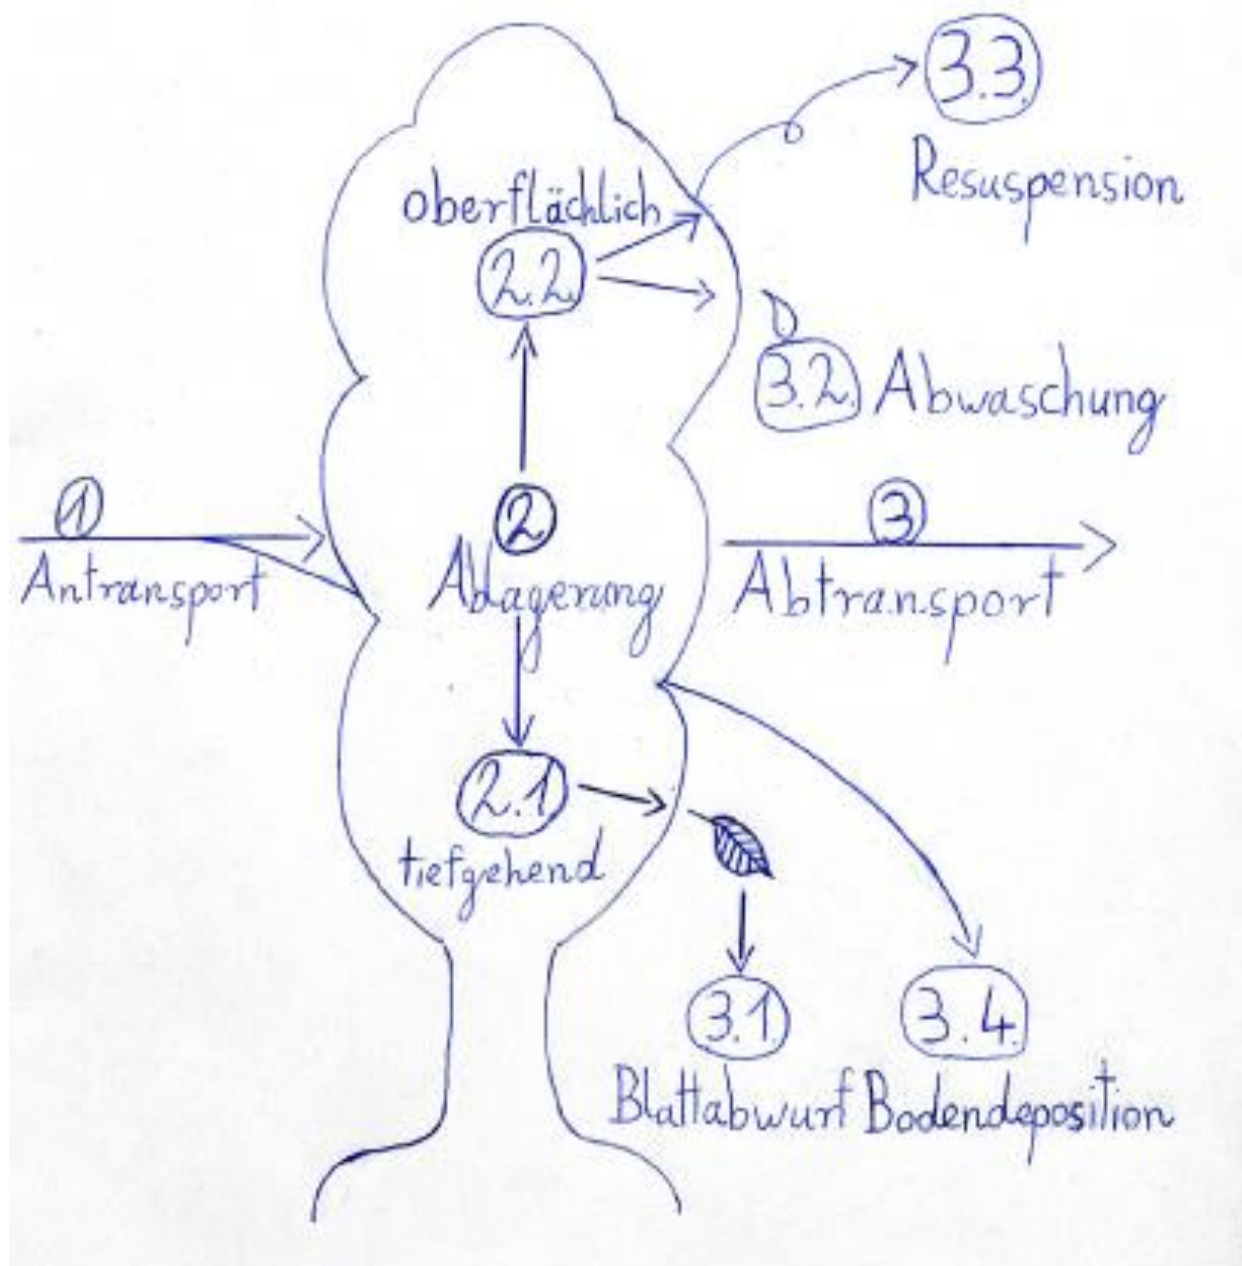 3.3.
Resuspension
oberflächlich
2.2.
3.2. Abwaschung
1
Antransport
2
Ablagerung
3
Abtransport
2.1
tiefgehend
3.1
Blattabwurf
3.4.
Bodendeposition